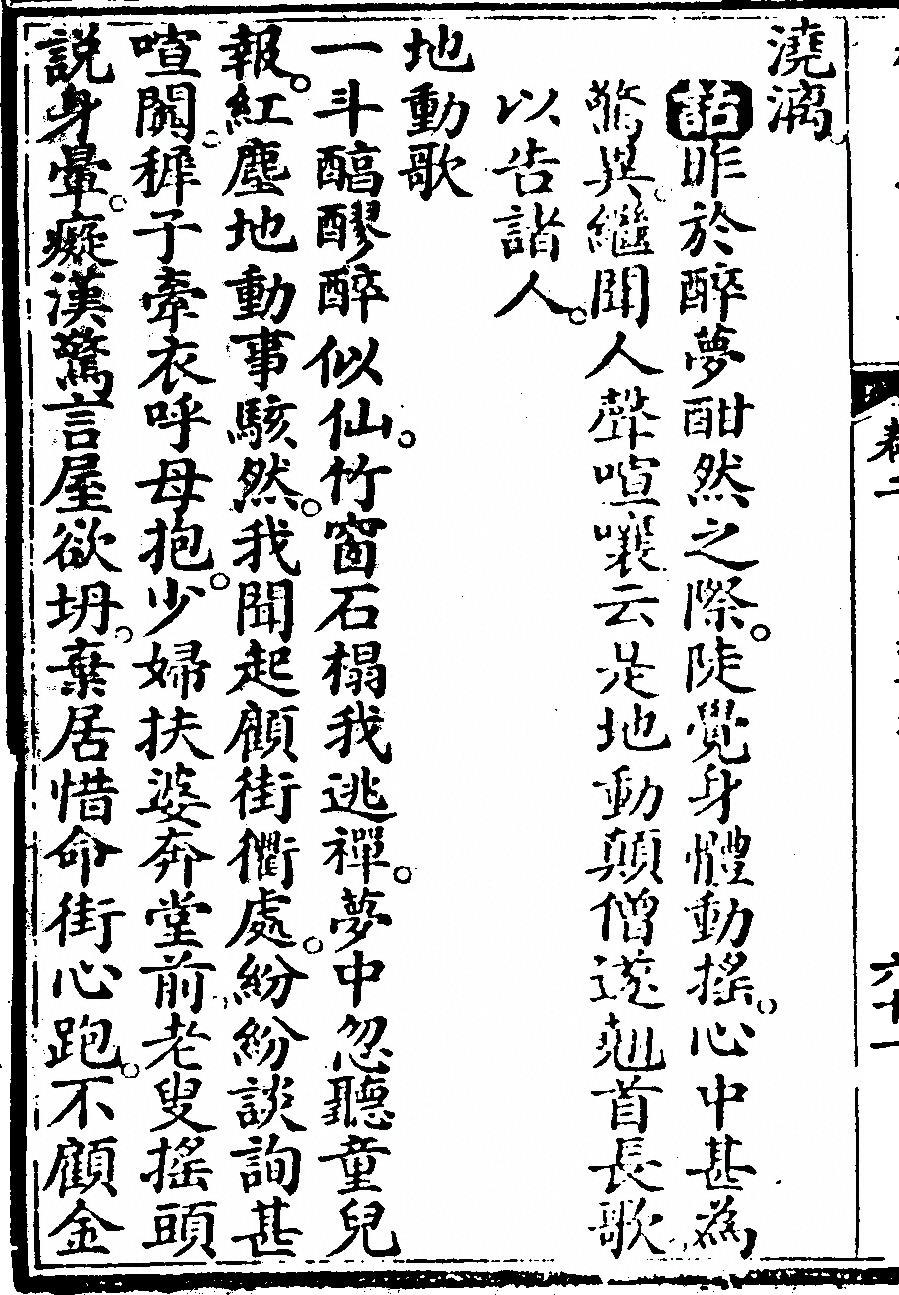 澆漓。
詰昨於醉夢酣然之際。陡覺身體動搖。心中甚為
驚異。繼聞人聲喧嚷云是地動顛僧遂翹首長歌
以告諸人。
地動歌
一斗醕醪醉似仙。竹窗石榻我逃禪。夢中忽聽童兒
報。紅塵地動事駭然。我聞起顧街衢處。紛紛談詢甚
喧闐。穉子牽衣呼母抱。少婦扶婆奔堂前。老叟搖頭
說身暈。癡漢驚言屋欲坍。棄居惜命街心跑。不顧金